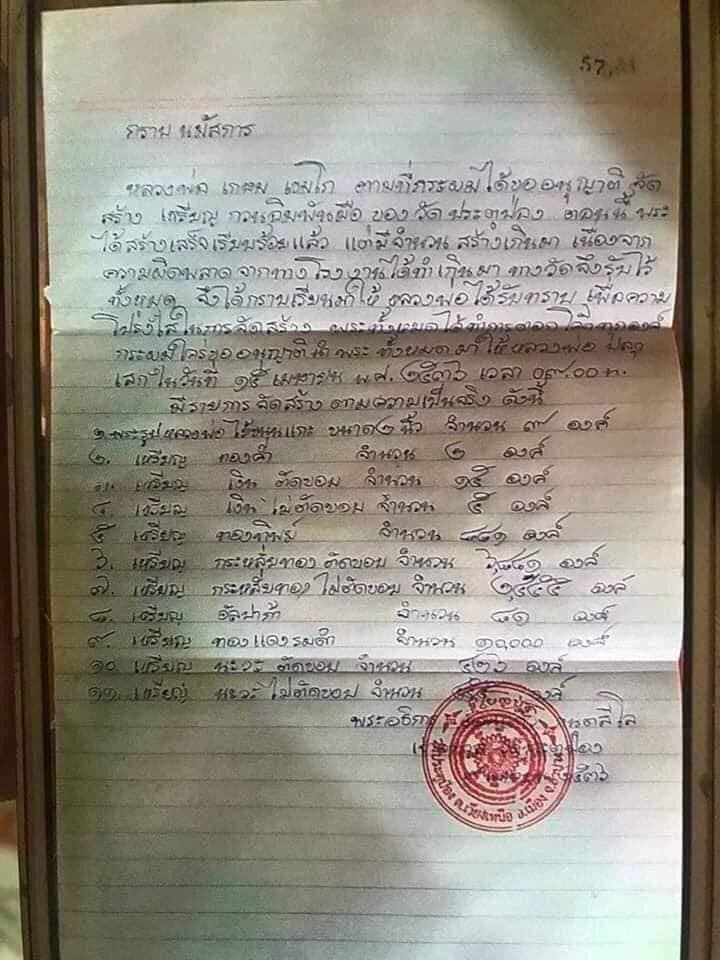 กราบ นมัสการ
หลวงพ่อ เกษม เขมโก ตามที่กระผมได้ขออนุญาติ จัด
สร้าง เหรียญ กวนอิมพันมือ ของวัด ประตูป่อง ตอนนี้ พระ
ได้สร้างเสร็จเรียบร้อยแล้ว แต่มีจำนวน สร้างเกินมา เนื่องจาก
ความผิดพลาด จากทางโรงงานได้ทำเกินมา ทางวัดจึงรับไว้
ทั้งหมด จึงได้กราบเรียนมาให้ หลวงพ่อได้รับทราบ เพื่อความ
โปร่งใสในการจัดสร้าง พระทั้งหมดได้ทำการตอกโค๊ตทุกองค์
กระผมใคร่ขออนุญาตินำ พระ ทั้งหมด มาให้หลวงพ่อ ปลุก
เสก ในวันที่ ๑๕ เมษายน พ.ศ. ๒๕๓๖ เวลา ๐๙.๐๐ น.
มีรายการ จัดสร้าง ตามความเป็นจริง ดังนี้
๑. พระรูปหลวงพ่อ ไม้ขนุนแกะ ขนาด ๒ นิ้ว จำนวน ๙ องค์
๒. เหรียญ ทองคำ จำนวน ๒ องค์
๓. เหรียญ เงิน ตัดขอบ จำนวน ๑๕ องค์
๔. เหรียญ เงิน ไม่ตัดขอบ จำนวน ๕ องค์
๕. เหรียญ ทองทิพย์ จำนวน ๔๔๑ องค์
๖. เหรียญ กระหลั่ยทอง ตัดขอบ จำนวน ๖,๔๔๑ องค์
๗. เหรียญ กระหลั่ยทอง ไม่ตัดขอบ จำนวน ๑,๕๕๕ องค์
๘. เหรียญ อัลปาก้า จำนวน ๔๑ องค์
๙. เหรียญ ทองแดงรมดำ จำนวน ๑๐,๐๐๐ องค์
๑๐. เหรียญ นะวะ ตัดขอบ จำนวน ๔๒๖ องค์
๑๑. เหรียญ นะวะ ไม่ตัดขอบ จำนวน องค์
พระอธิการ
๒๕๓๖
ต.เวียงเหนือ อ.เมือง จ.ลำปาง